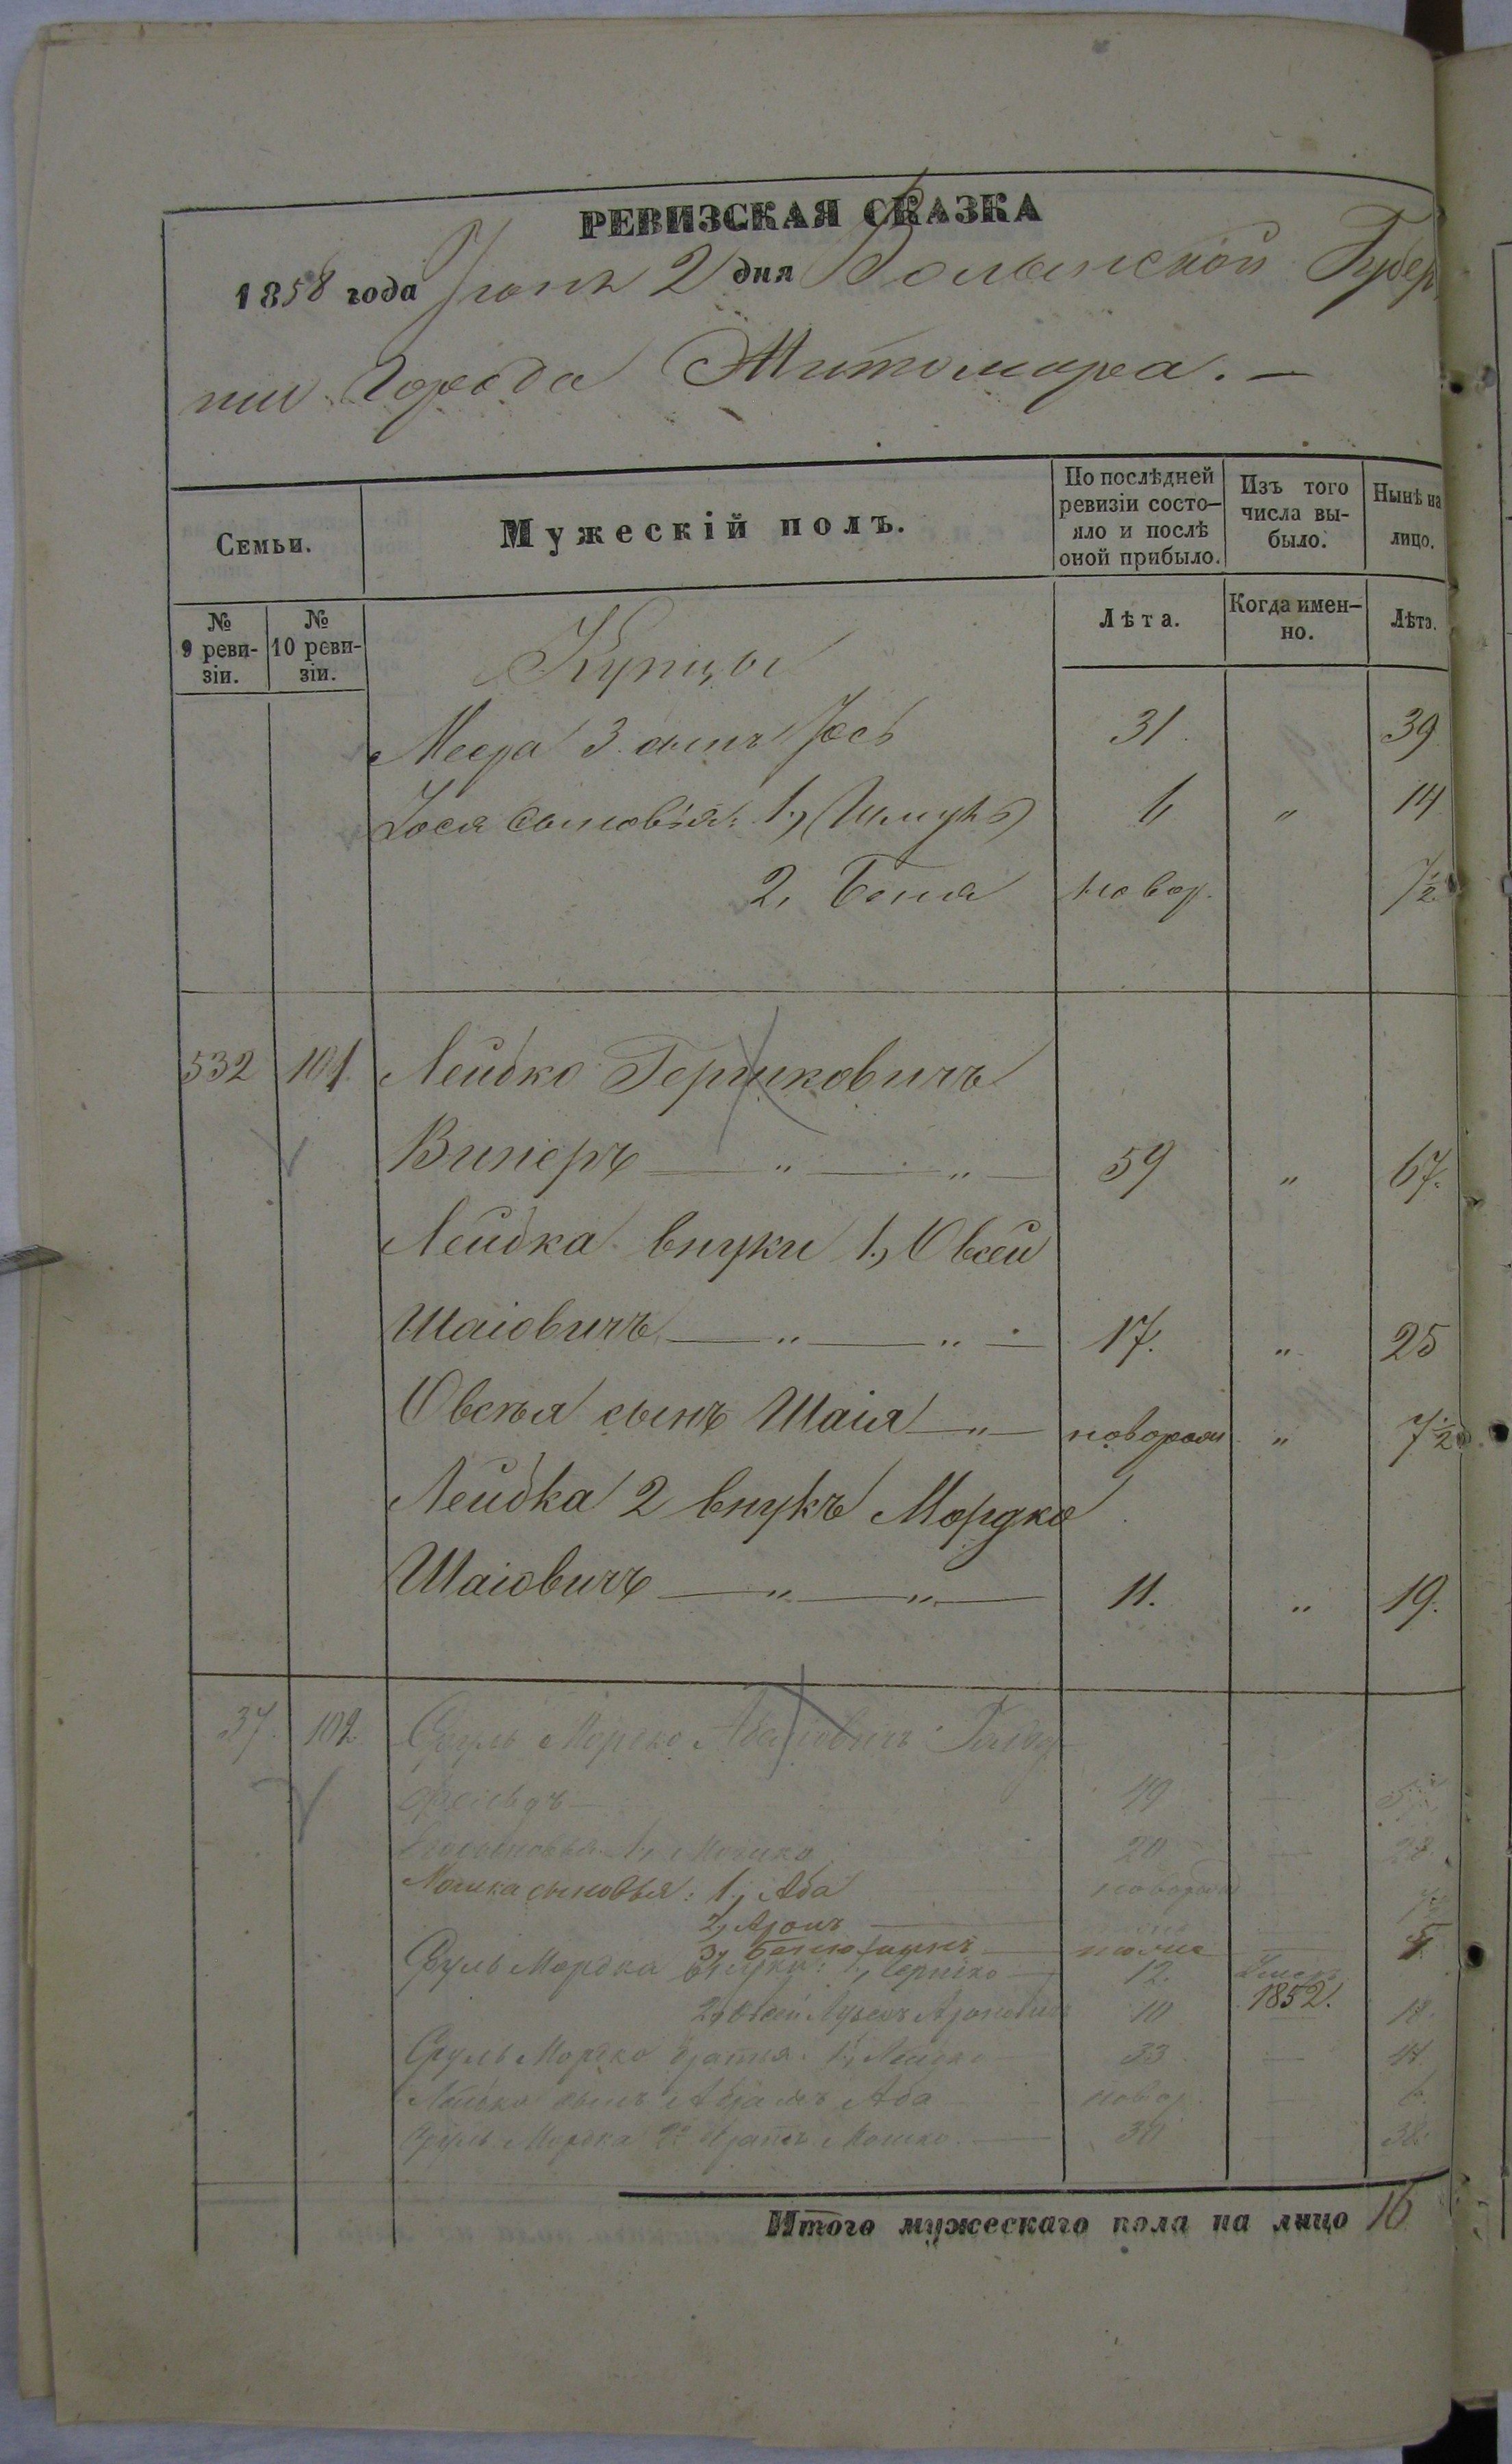 РЕВИЗСКАЯ СКАЗКА
1858 года Июня 2 дня Волынской Губер
нии Города Житомира. —
Семьи.
Мужескій полъ.
По послѣдней ревизіи состо-
яло и послѣ оной прибыло.
Изъ того числа вы-
было.
Нынѣ на лицо.
№ 9 реви-
зіи.
№ 10 реви-
зіи.
Лѣта.
Когда имен-
но.
Лѣта.
Купцы
Меера 3 сынъ Іось 31. 39
Іося сыновья: 1, Шмуль 6 " 14
2, Беня новор. 7½
532 101 Лейбко Гершковичъ
Винеръ — " — " — 59 " 67.
Лейбка внуки 1, Овсей
Шаіовичъ — " — " — 17. " 25
Овсѣя сынъ Шаія — " — новорож " 7½
Лейбка 2 внукъ Мордко
Шаіовичъ — " — " — 11. " 19.
37. 102 Сруль Мордко Абамовичъ
фельдъ — 49
1, Мошко 20 — 28.
Мошка сыновья: 1, Аба новорожд
2, Аронъ —
3, —
Сруль Мордка внуки: 1, Гершко — 12. 1852.
2, Овсей Ароновичъ 10 — 18.
Сруль Мордко братья. 1, Лейбко — 33 — 41.
Лейбко сынъ Абрамъ Аба новор. — 6.
Сруль Мордка 2й братъ Мошко. — 30 — 38.
Итого мужескаго пола на лицо 16